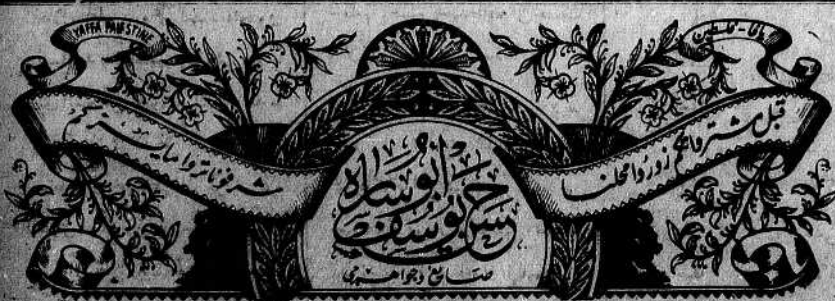 YAFFA PALESTINE
يافا - فلسطين
قبل مشترواتكم زوروا محلنا
شرفونا تروا ما يسركم
يوسف ابو ساره
صايغ وجواهرجي